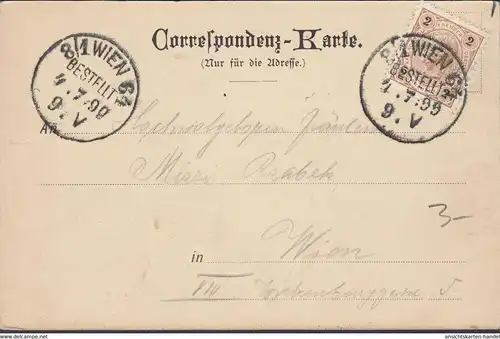 Correspondenz-Karte.
(Nur für die Adresse.)
2 2
8/1 WIEN 64
BESTELLT
4.7.99
9.V
8/1 WIEN 64
BESTELLT
4.7.99
9.V
An
Hochwolgeboren Fräulein
Mizzi
3-
in Wien
VIII
5
www.ansichtskarten-handel.com/
ansichtskarten-handel.com/